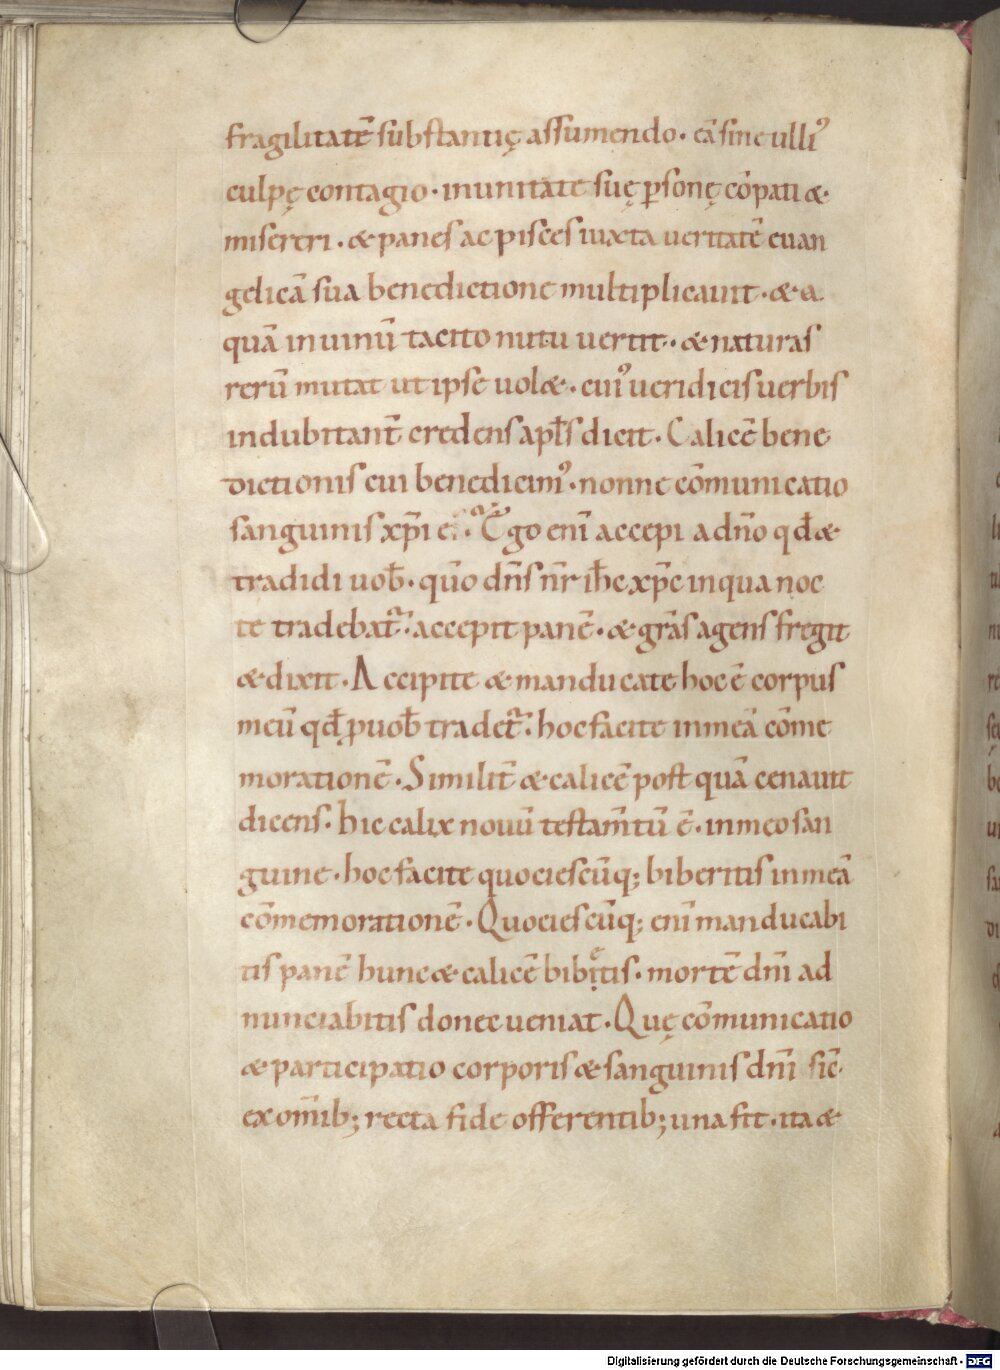 fragilitatē substantię assumendo · eā sine ulli᾽
culpę contagio · in unitate suę p̱sonę cōpati &
misereri · & panes ac pisces iuxta ueritatē euan
gelicā sua benedictione multiplicauit · & a
quā in uinū tacito nutu uertit · & naturas
rerū mutat ut ipse uol& · cui᾽ ueridicis uerbis
indubitant̄ credens apl̄s dicit · Calicē bene
dictionis cui benedicim᾽ · nonne cōmunicatio
sanguinis xp̄i e · Ego enī accepi a dn̄o qđ &
tradidi uob̄ · quō dn̄s nr̄ ih̄c xp̄c in qua noc
te tradebat᷑ · accepit panē · & grās agens fregit
& dixit · Accipite & manducate hoc ē corpus
meū qđ ꝓ uob̄ tradet᷑ · hoc facite in meā cōme
morationē · Similit̄ & calicē post quā cenauit
dicens · hic calix nouū testam̄tū ē · in meo san
guine · hoc facite quociescūq; biberitis in meā
cōmemorationē · Quociescūq; enī manducabi
tis panē hunc & calicē bibi̓tis · mortē dn̄i ad
nunciabitis donec ueniat · Quę cōmunicatio
& participatio corporis & sanguinis dn̄i sic̄
ex om̄ib; recta fide offerentib; una fit · ita &
Digitalisierung gefördert durch die Deutsche Forschungsgemeinschaft - DFG